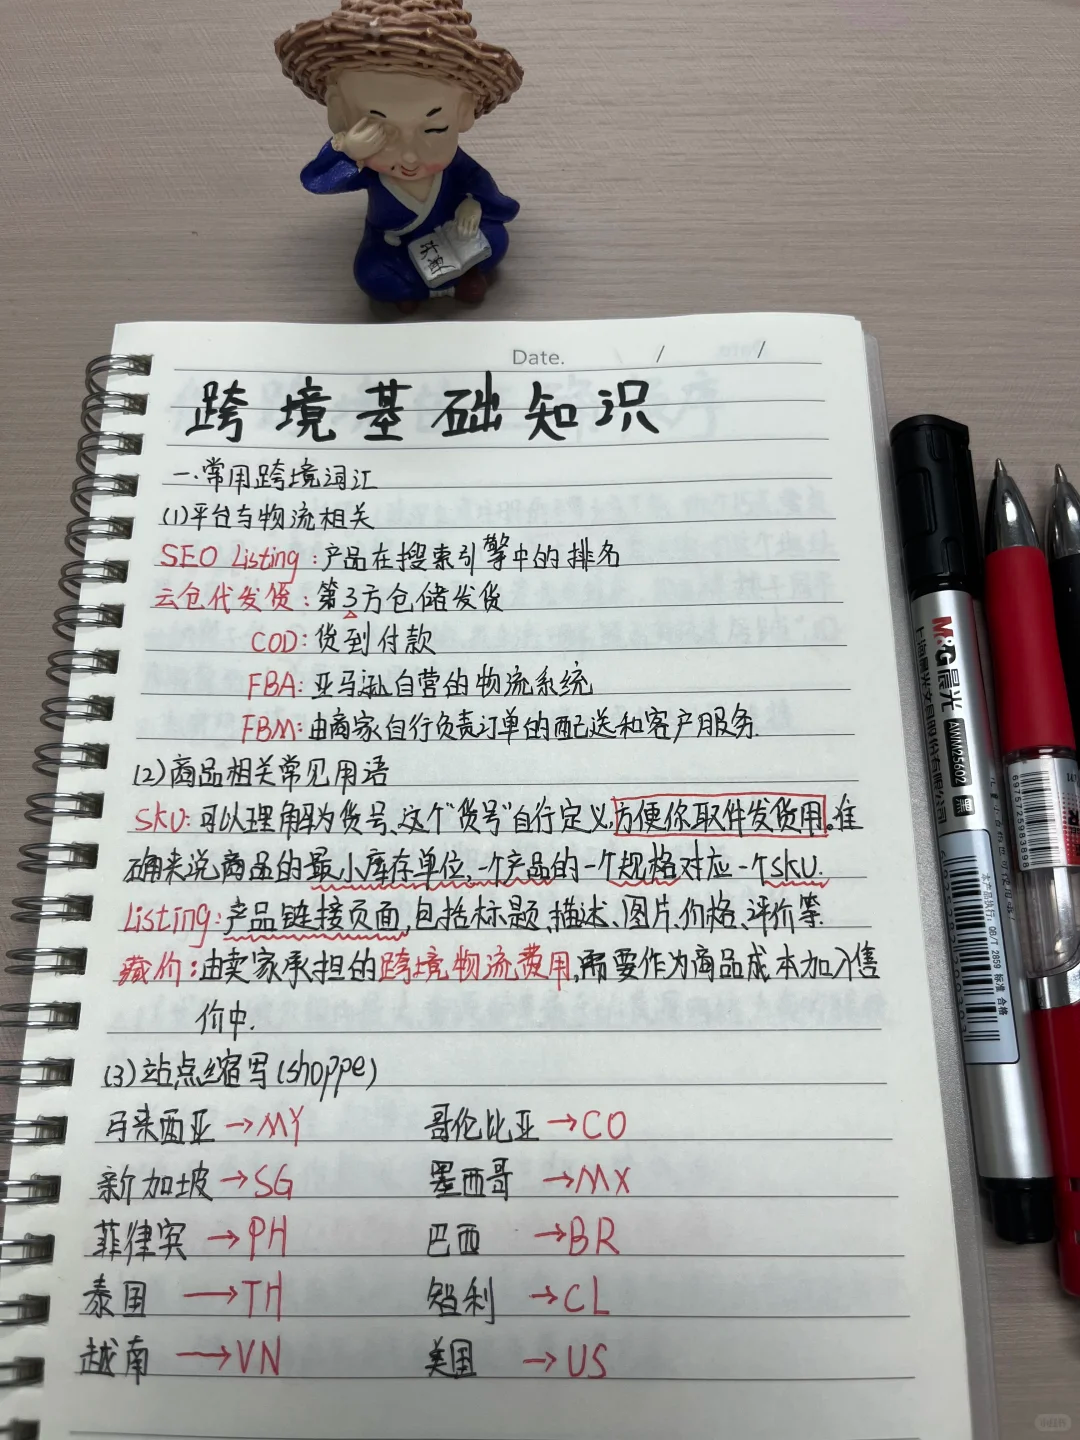 Date. / /
跨境基础知识
一.常用跨境词汇
(1)平台与物流相关
SEO Listing:产品在搜索引擎中的排名
云仓代发货:第3方仓储发货
COD:货到付款
FBA:亚马逊自营的物流系统
FBM:由商家自行负责订单的配送和客户服务.
(2)商品相关常见用语
SKU:可以理解为货号、这个"货号"自行定义,方便你取件发货用。准
确来说商品的最小库存单位,一个产品的一个规格对应一个SKU.
Listing:产品链接页面,包括标题、描述、图片、价格、评价等.
藏价:由卖家承担的跨境物流费用,需要作为商品成本加入售
价中.
(3)站点缩写(shoppe)
马来西亚→MY 哥伦比亚→CO
新加坡→SG 墨西哥→MX
菲律宾→PH 巴西→BR
泰国→TH 智利→CL
越南→VN 美国→US
M&G晨光
AWM25602 黑
上海晨光文具股份有限公司
6975725983898